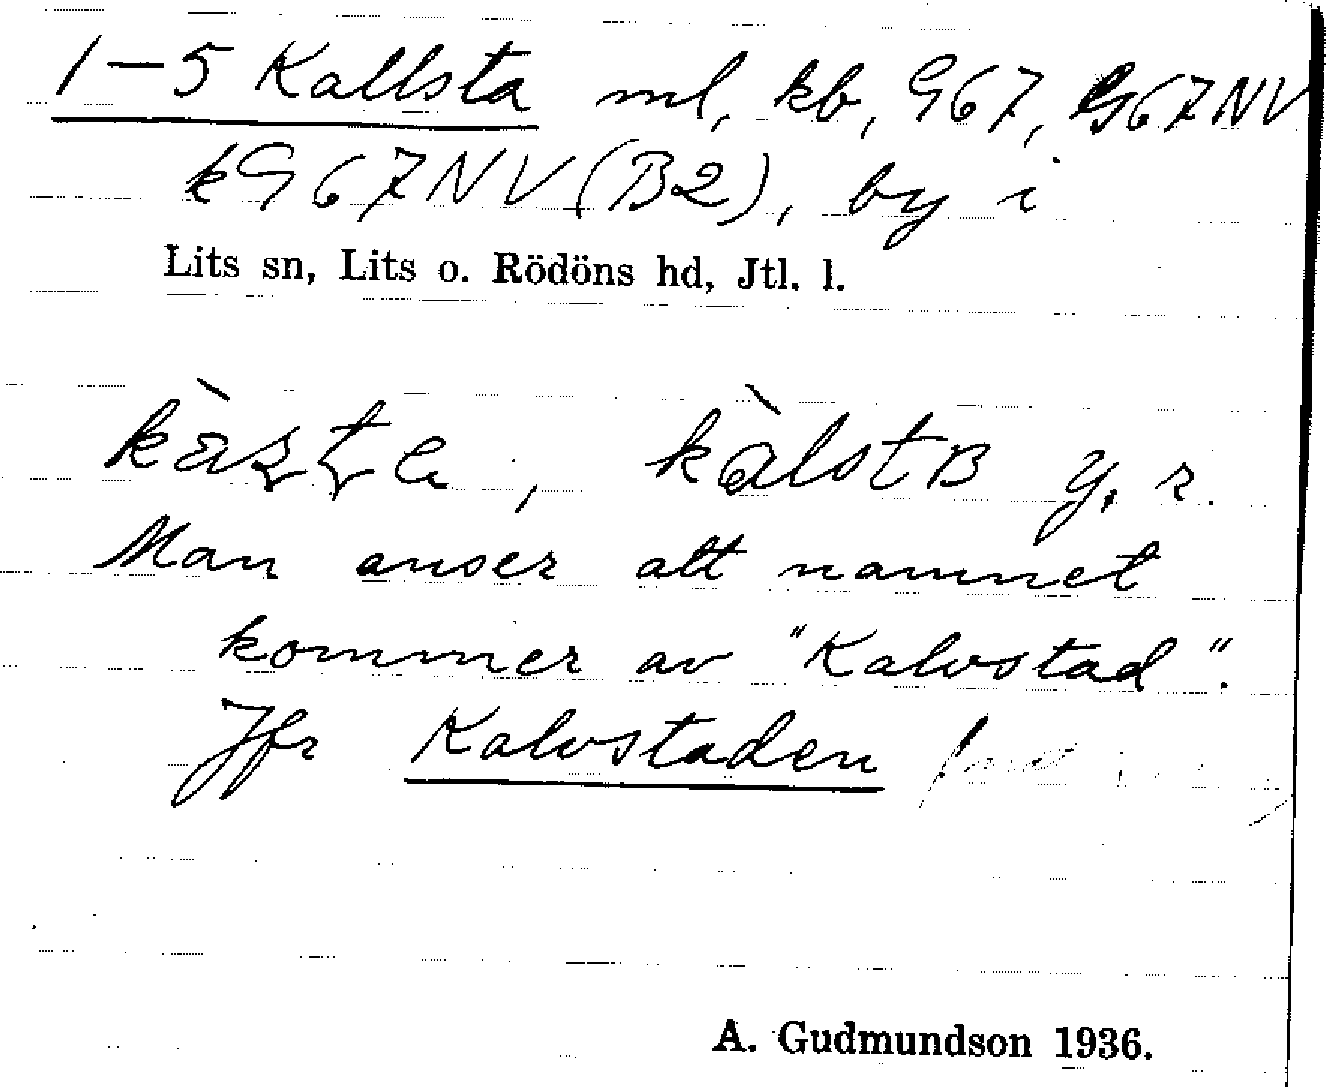 1-5 Kallsta ml, kb, G67, G67NV
kG67NV (B2), by i
Lits sn, Lits o. Rödöns hd, Jtl. l.
kàlstʙ y. r.
Man anser att namnet
kommer av "Kalvstad".
Jfr Kalvstaden
A. Gudmundson 1936.